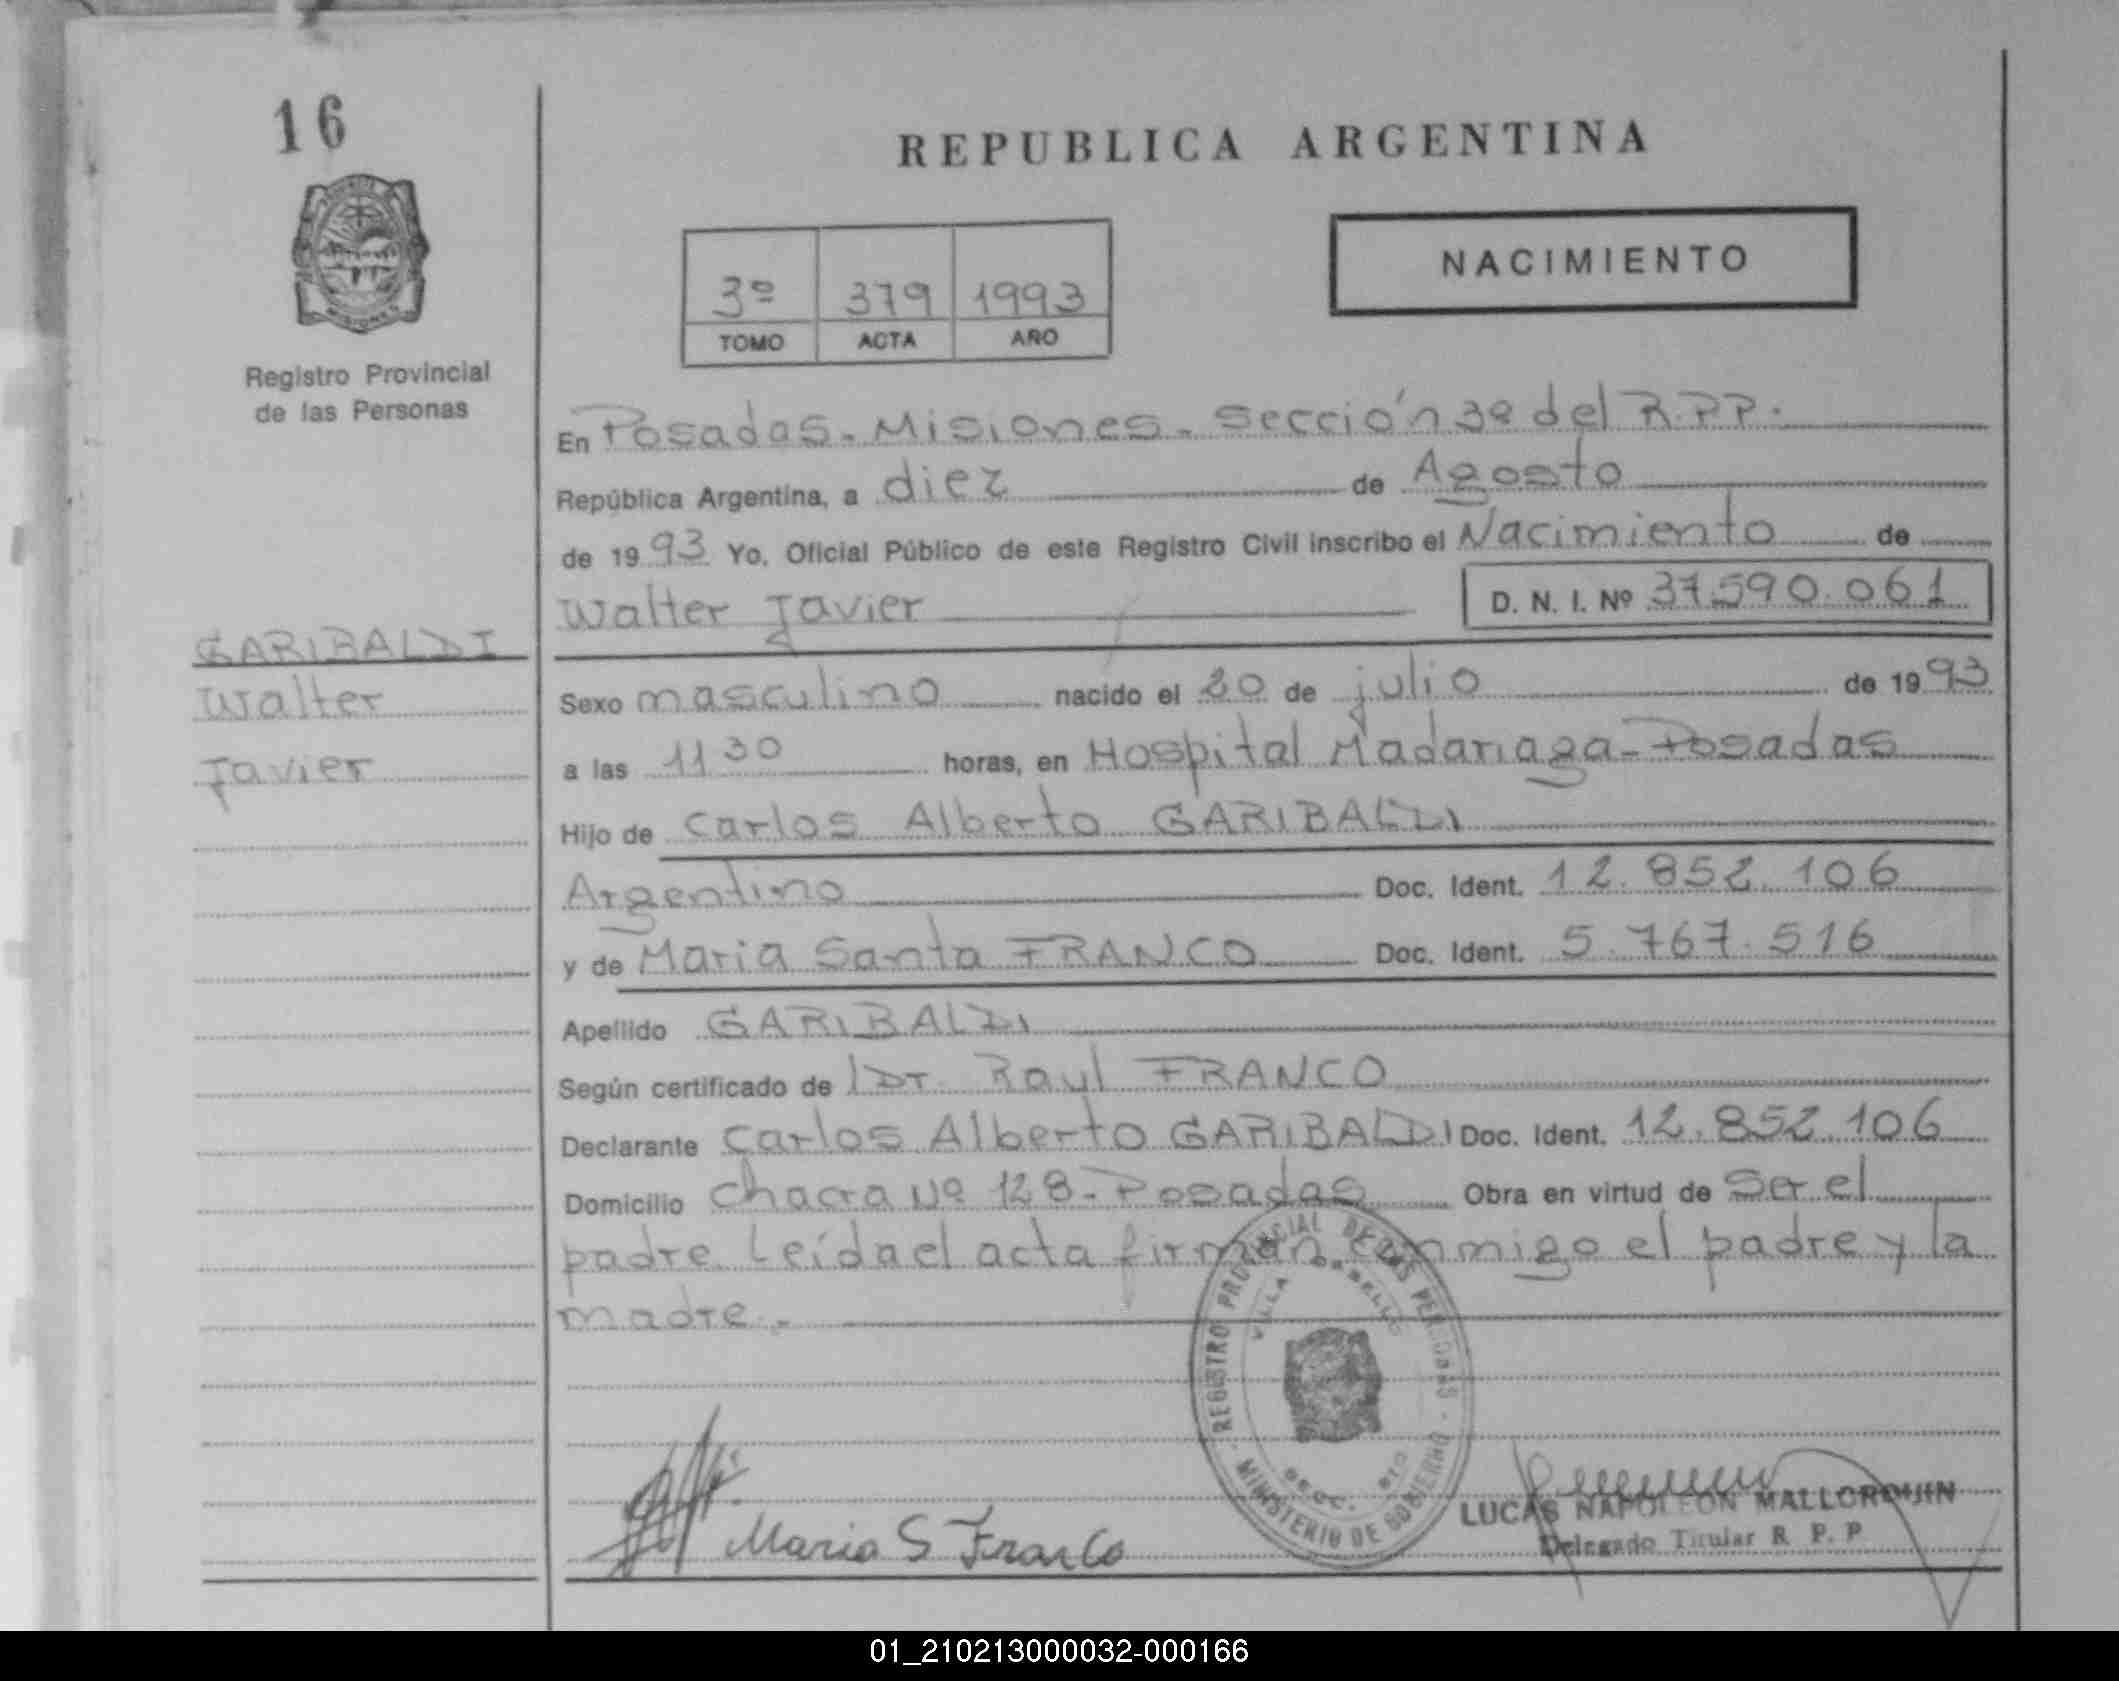 16
REPUBLICA ARGENTINA
NACIMIENTO
3º 379 1993
TOMO ACTA AÑO
Registro Provincial
de las Personas
En Posadas. Misiones. Sección 3º del R.P.P.
República Argentina, a diez de Agosto
de 1993 Yo, Oficial Público de este Registro Civil inscribo el Nacimiento de
Walter Javier D. N. I. Nº 37.590.061
GARIBALDI
Walter
Javier
Sexo masculino nacido el 20 de julio de 1993
a las 11 30 horas, en Hospital Madariaga-Posadas
Hijo de Carlos Alberto GARIBALDI
Argentino Doc. Ident. 12.852.106
y de Maria Santa FRANCO Doc. Ident. 5.767.516
Apellido GARIBALDI
Según certificado de Dr. Raul FRANCO
Declarante Carlos Alberto GARIBALDI Doc. Ident. 12.852.106
Domicilio Chacra Nº 128-Posadas Obra en virtud de Ser el
padre. Leída el acta firman conmigo el padre y la
madre.-
REGISTRO PROVINCIAL DE LAS PERSONAS - MINISTERIO DE GOBIERNO
VILLA CABELLO
Maria S Franco
LUCAS NAPOLEON MALLORQUIN
Delegado Titular R. P. P
01_210213000032-000166